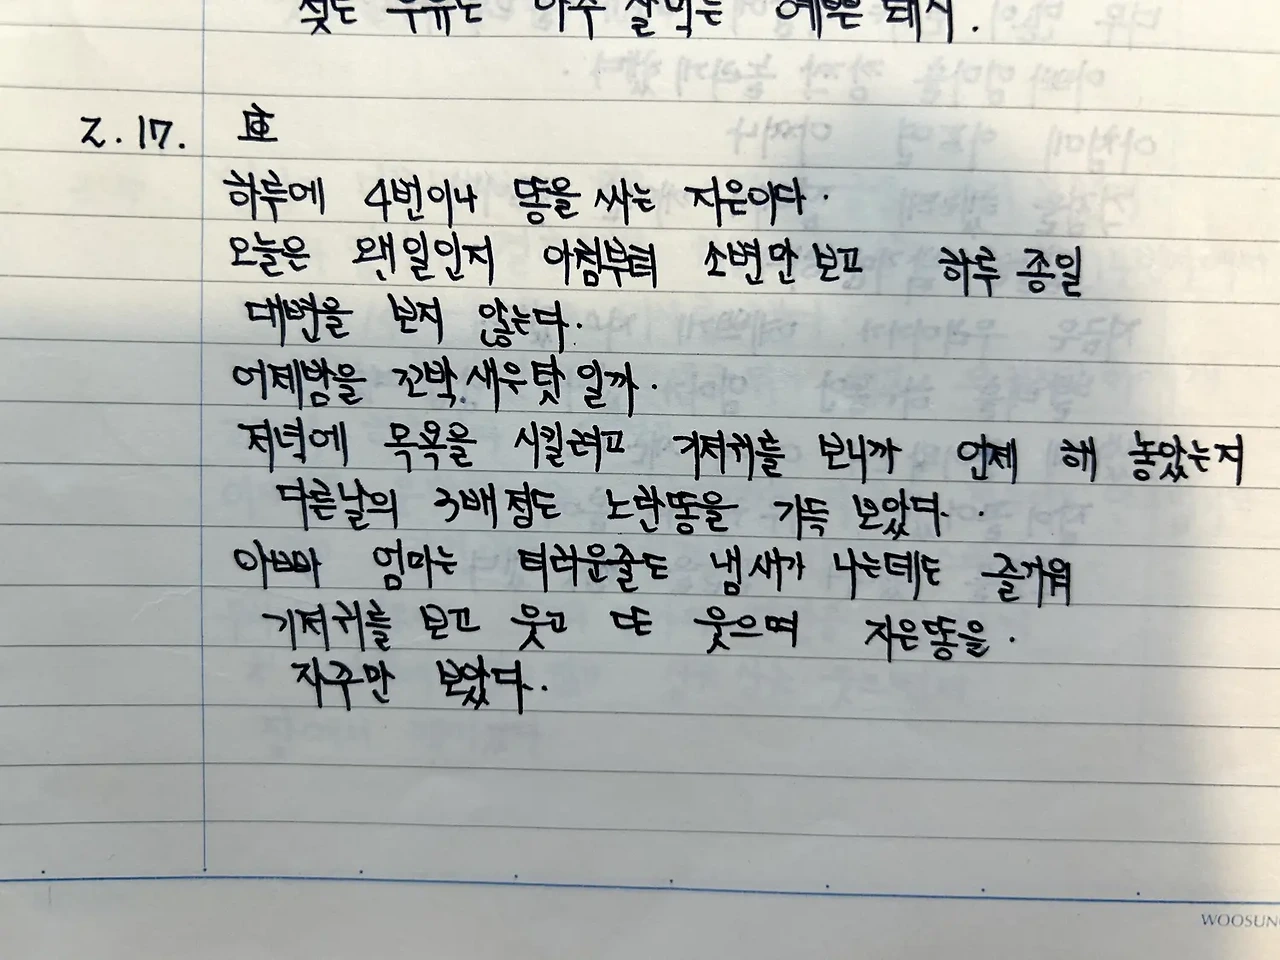 젖도 우유도 아주 잘먹는 예쁜 돼지.
2. 17.
하루에 4번이나 똥을 싸는 지은이다.
오늘은 왠일인지 아침부터 소변만 보고 하루 종일
대변을 보지 않는다.
어제밤을 꼬박 새우탓 일까.
저녁에 목욕을 시킬려고 기저귀를 보니까 언제 해 놓았는지
다른날의 3배 점도 노란똥을 가득 보았다.
아빠 엄마는 더러운줄도 냄새가 나는데도 즐거워
기저귀를 보고 웃고 또 웃으며 지은똥을.
자주만 보았다.
WOOSUNG